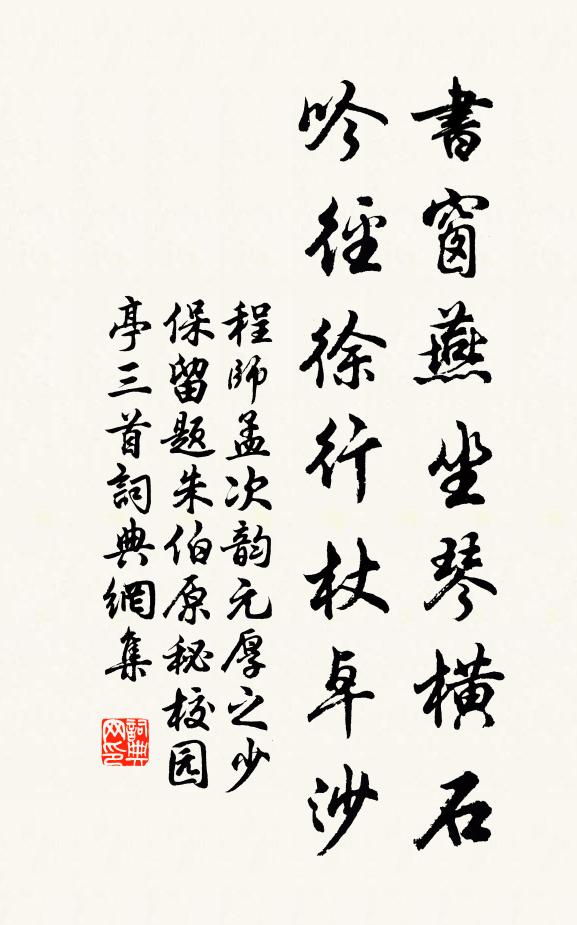 書窗燕坐琴橫石
吟徑徐行杖卓沙
程師孟次韵元厚之少
保留題朱伯原秘校园
亭三首詞典網集
詞典
网印